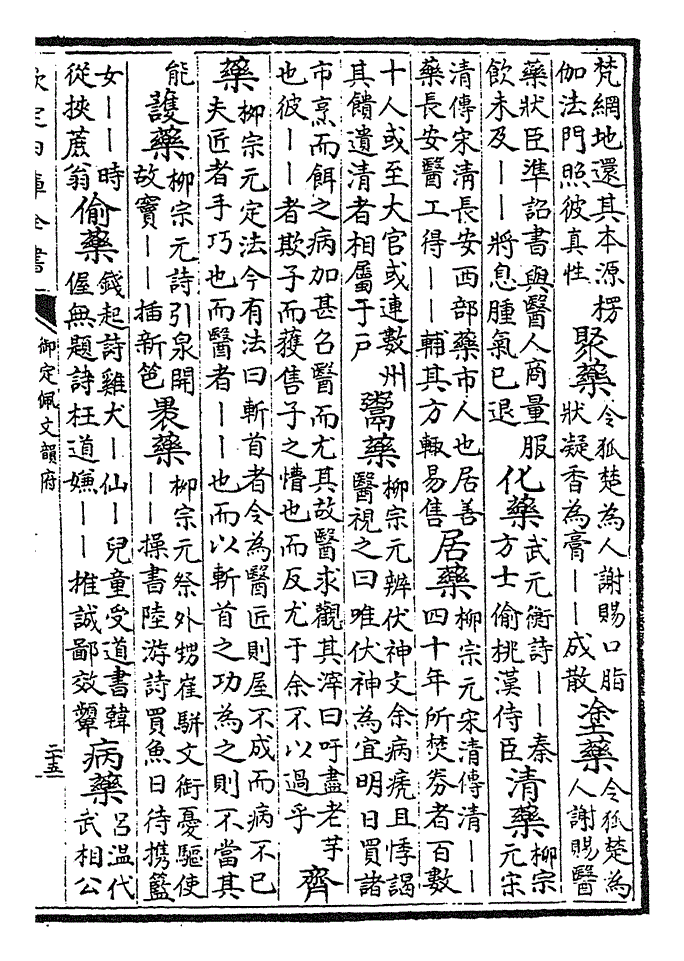 梵網地還其本源楞
伽法門照彼真性
聚藥
令狐楚為人謝賜口脂
狀凝香為膏——成散
塗藥
令狐楚為
人謝賜醫
藥狀臣準詔書與醫人商量服
飲未及——將息腫氣已退
化藥
武元衡詩——秦
方士偷桃漢侍臣
清藥
柳宗
元宋
清傳宋清長安西部藥市人也居善
藥長安醫工得——輔其方輙易售
居藥
柳宗元宋清傳清——
四十年所焚券者百數
十人或至大官或連數州
其饋遺清者相屬于戶
鬻藥
柳宗元辨伏神文余病痷且悸謁
醫視之曰唯伏神為宜明日買諸
市烹而餌之病加甚召醫而尤其故醫求觀其滓曰吁盡老芋
也彼——者欺子而獲售子之懵也而反尤于余不以過乎
齊
藥
柳宗元定法令有法曰斬首者令為醫匠則屋不成而病不已
夫匠者手巧也而醫者——也而以斬首之功為之則不當其
能
護藥
柳宗元詩引泉開
故竇——插新笆
褁藥
柳宗元祭外甥崔駢文銜憂驅使
——操書陸游詩買魚日待携籃
女——時
從挾蔗翁
偷藥
錢起詩雞犬—仙—兒童受道書韓
偓無題詩枉道嫌——推誠鄙效顰
病藥
呂溫代
武相公
欽定四庫全書
御定佩文韻府
二十五